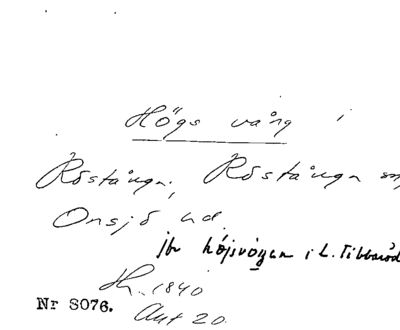 Högs vång i
Röstånga, Röstånga sn
Onsjö hd.
jbr höjsvången i L. Tibbaröd
Hs. 1840
Nr S076.
Akt 20.